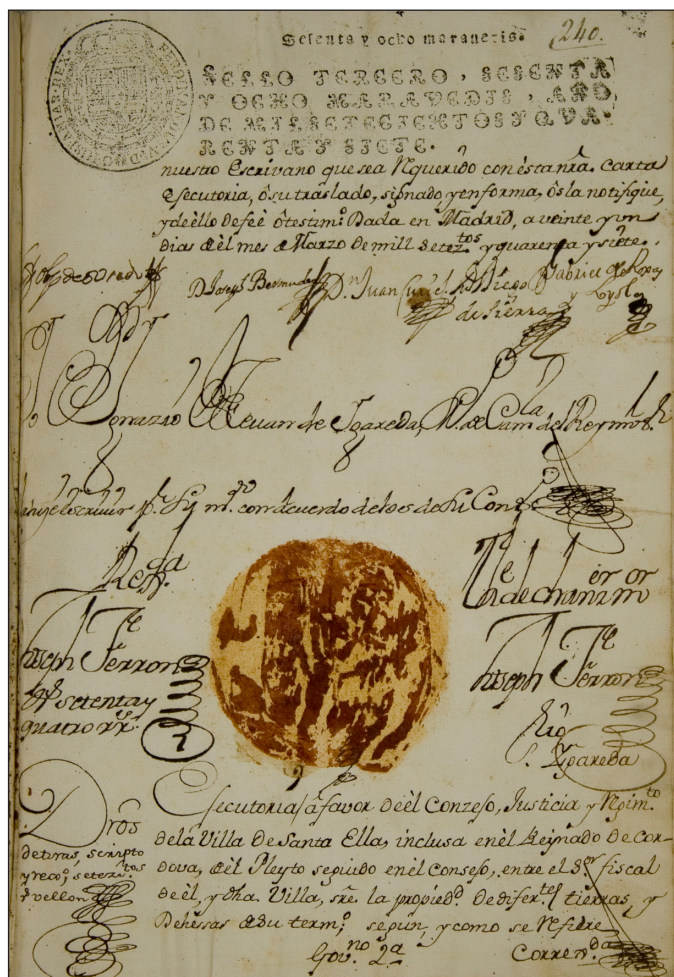 Sesenta y ocho maravedis.
240.
SELLO TERCERO, SESENTA
Y OCHO MARAVEDIS, AÑO
DE MIL SETECIENTOS Y QVA-
RENTA Y SIETE.
nuestro Escrivano que sea requerido con ésta nrã. Carta
Executoria, ó su traslado, signado y en forma, ós la notifique,
y de éllo de feé ó testim.º Dada en Madrid, a veinte y un
dias del mes de Marzo de mill setez.tos y quarenta y siete.
D. Joseph Bermudez D.n Juan Diego Gabriel de
de sierra
de Ygareda, de Cam.la del Rey nrõ s.r
escrivir p.r su m.do con acuerdo de los de su Cons.
Reg.da
The.te de chanz.er m.or
Joseph Ferron
Joseph Ferron
setenta y
quatro rs.
Ygareda
Drõs
de tiras, scripto
y reco.º setez.tos
vellon
Executoria â favor deél Conzejo, Justicia y Regim.to
de la Villa de Santa Ella, inclusa en él Reynado de Cor-
dova, del Pleyto seguido en él Consejo, entre el S.or fiscal
de él, y dha. Villa, sre. la propied.d de difer.tes tierras, y
Dehessas de su term.º segun, y como se refiere
Gov.no 2.a
Corren.da